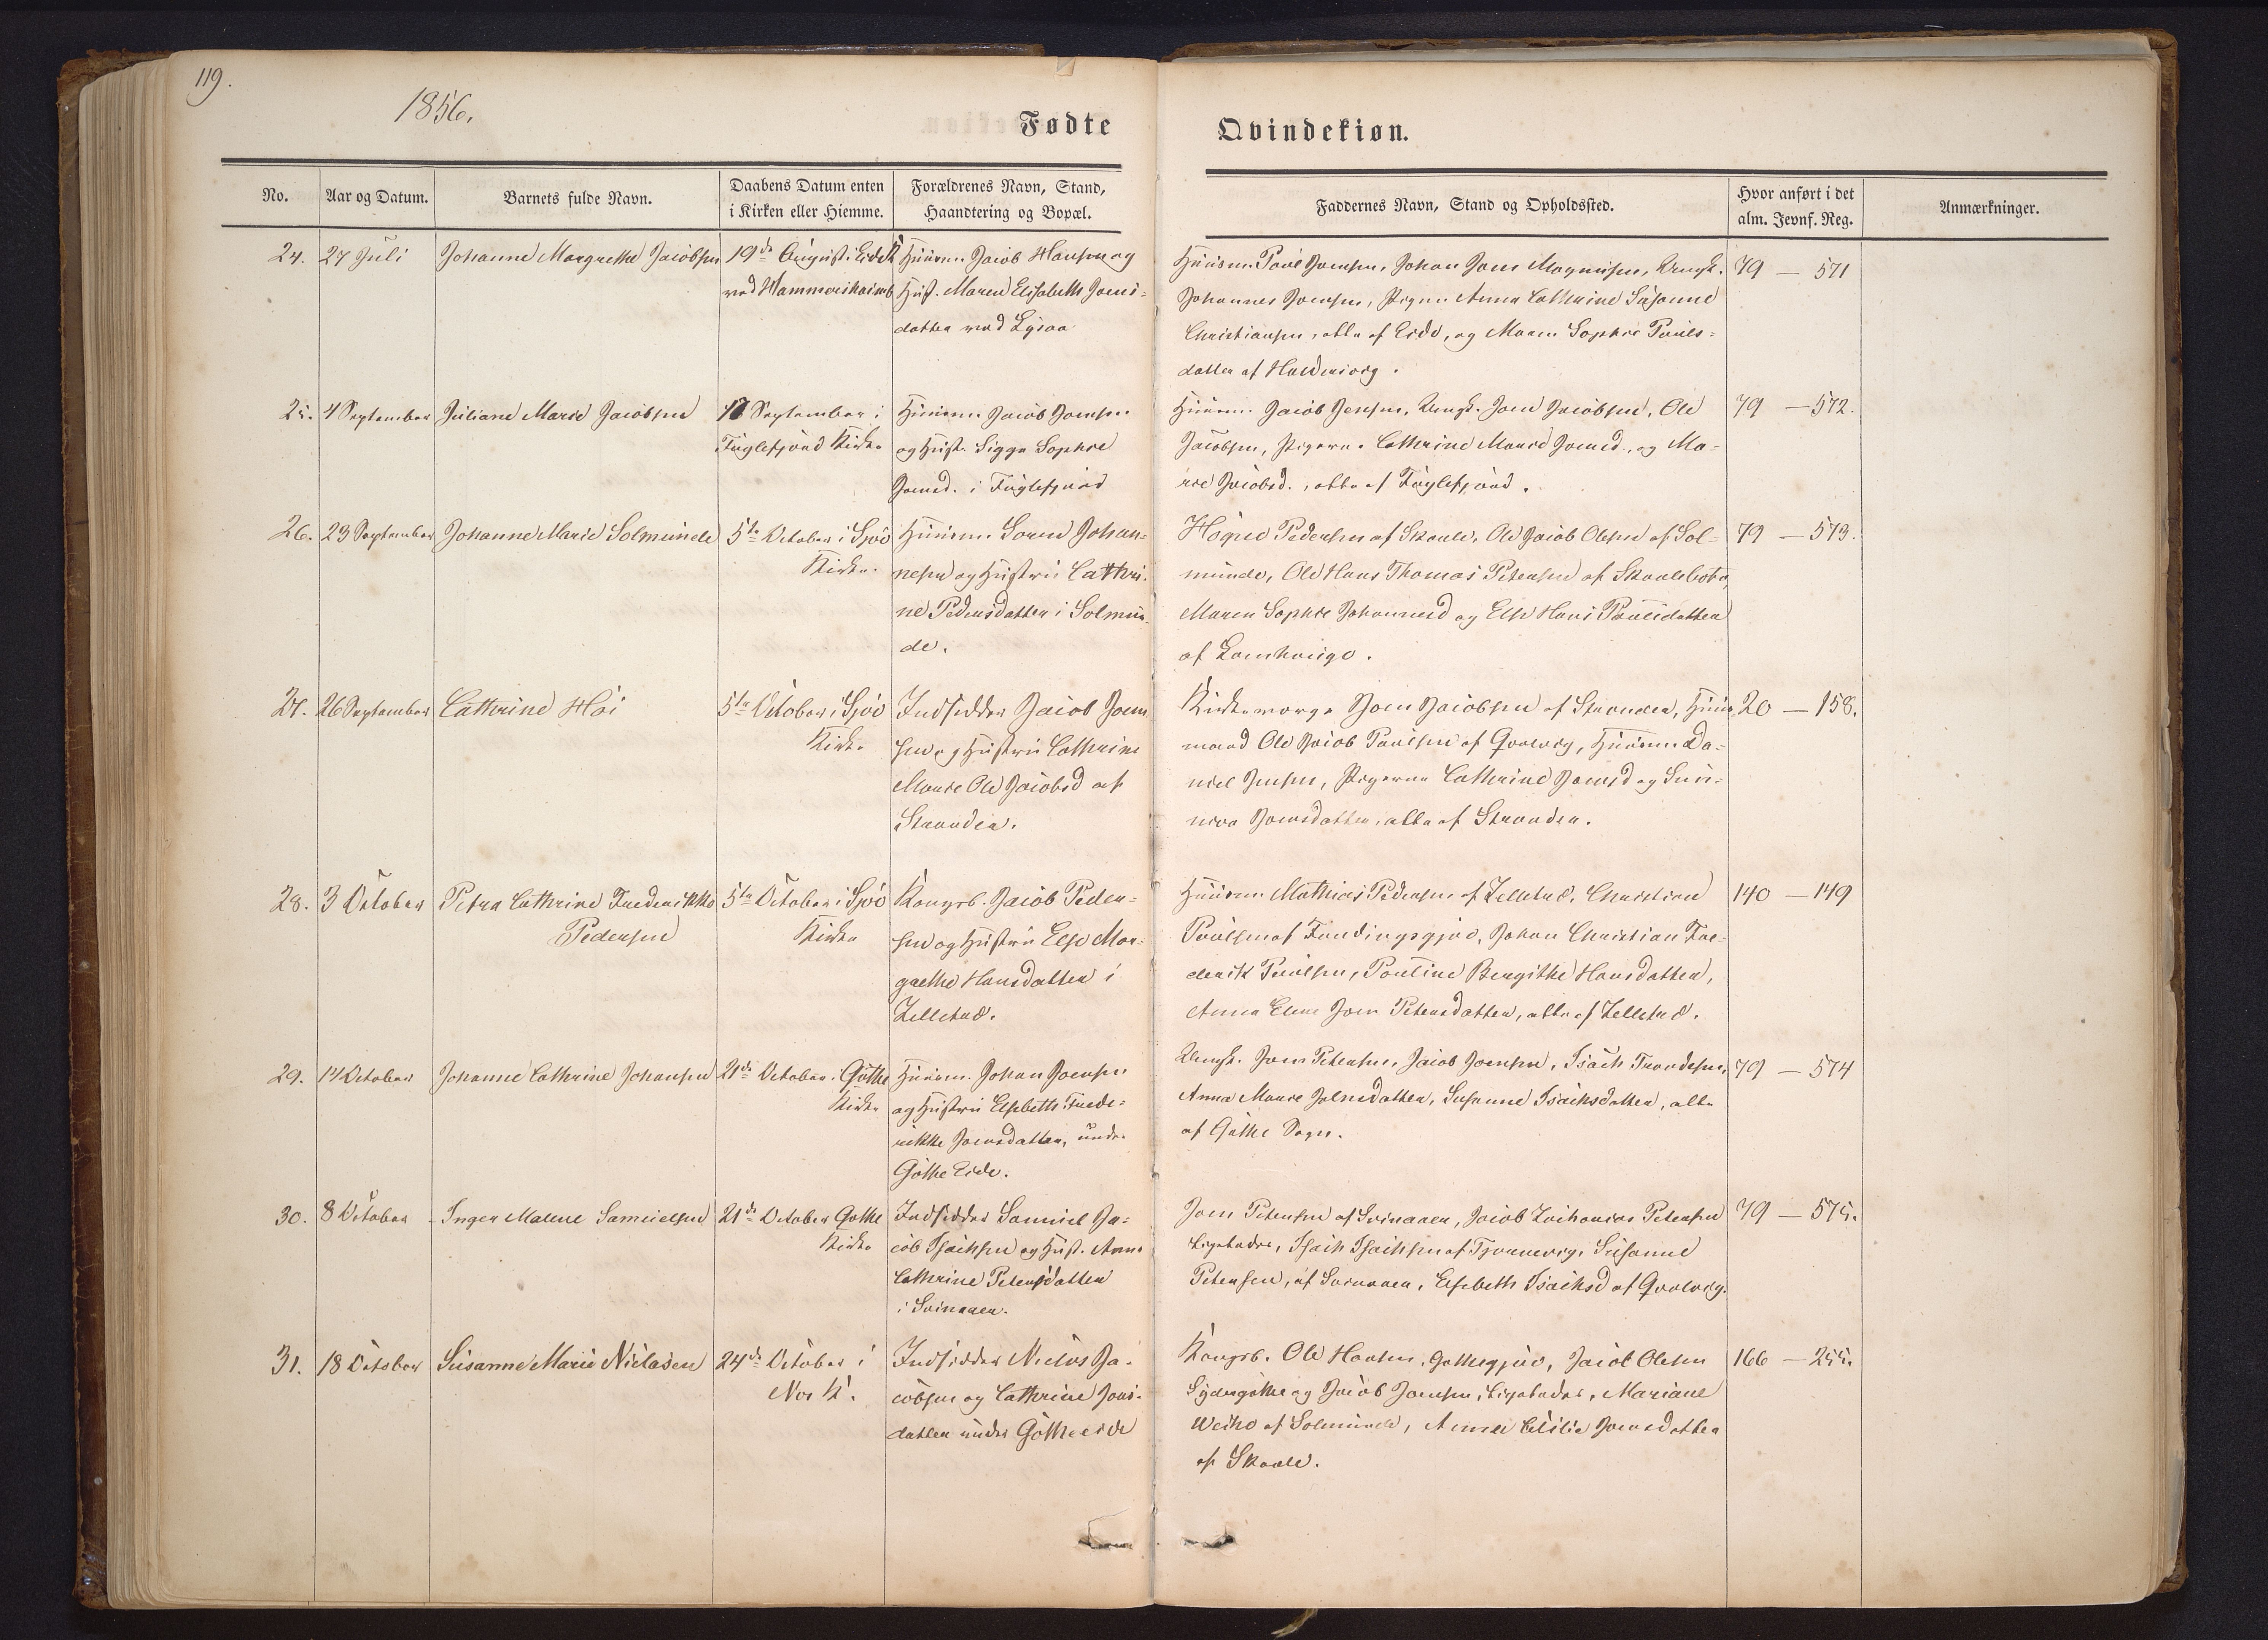 119.
1856.
Fødte
Qvindekiøn.
No.
Aar og Datum.
Barnets fulde Navn.
Daabens Datum enten
i Kirken eller Hiemme.
Forældrenes Navn, Stand,
Haandtering og Bopæl.
Faddernes Navn, Stand og Opholdssted.
Hvor anført i det
alm. Jevnf. Reg.
Anmærkninger.
24. 27 Juli Johanne Margrethe Jacobsen 19de August i Eide K
ved Hammershaimb
Huusm. Jacob Hansen og
Hust. Maren Elisabeth Joens-
datter ved Lysaa
Huusm. Poul Joensen, Johan Joen Magnusen, Ungk.
Johannes Joensen, Pigen Anna Cathrine Susanne
Christiansen, alle af Eide, og Maren Sophie Pouls-
datter af Haldersvig.
79 — 571
25. 4 September Juliane Marie Jacobsen
September i
Fuglefjord Kirke
Huusm. Jacob Joensen
og Hust. Sigga Sophie
Joensd. i Fuglefjord
Huusm. Jacob Jensen, Ungk. Joen Jacobsen, Ole
Jacobsen, Pigerne Cathrine Marie Joensd., og Ma-
rie Jacobsd., alle af Fuglefjord.
79 — 572.
26. 23 September Johanne Marie Solmunde 5te October i Sjov
Kirke.
Huusm. Soren Johan-
nesen og Hustru Cathri-
ne Pedersdatter i Solmun-
de.
Høgne Pedersen af Skaale, Ole Jacob Olesen af Sol-
munde, Ole Hans Thomas Petersen af Skaalebotn,
Maren Sophie Johannesd og Else Hans Poulsdatter
af Lamhauge.
79 — 573.
27. 26 September Cathrine Høi 5te October i Sjov
Kirke
Indsidder Jacob Joen-
sen og Hustru Cathrine
Marie Ole Jacobsd af
Strender.
Kirkeværge Joen Jacobsen af Strender, Huus-
mand Ole Jacob Poulsen af Qvalvig, Huusm. Da-
niel Jensen, Pigerne Cathrine Joensd og Sun-
neva Joensdatter, alle af Strender.
20 — 158.
28. 3 October Petra Cathrine Frederikke
Pedersen
5te October i Sjov
Kirke
Kongsb. Jacob Peder-
sen og Hustru Else Mar-
grethe Hansdatter i
Zelletræ.
Huusm. Mathias Pedersen af Zelletræ, Christian
Poulsen af Funding, Johan Christian Fre-
derik Poulsen, Pouline Bergithe Hansdatter,
Anna Elene Joen Petersdatter, alle af Zelletræ.
140 — 149
29. 14 October Johanne Cathrine Johansen 21de October. Gøthe
Kirke
Huusm. Johan Joensen
og Hustru Elsebeth Frede-
rikke Joensdatter, under
Gøthe Eide.
Ungk. Joen Petersen, Jacob Joensen, Isach Trondesen,
Anna Marie Joensdatter, Susanne Isachsdatter, alle
af Gøthe Sogn.
79 — 574
30. 8 October Inger Malene Samuelsen 21de October Gøthe
Kirke
Indsidder Samuel Ja-
cob Isachsen og Hust. Anna
Cathrine Petersdatter
i Svinaaen.
Joen Petersen af Svinaaen, Jacob Zacharias Petersen
Isach Isachsen af Tjørnevig, Susanne
Petersen, af Svinaaen, Elsebeth Isachsd af Qvalvig.
79 — 575.
31. 18 October Susanne Marie Niclasen 24de October i
Nes K.
Indsidder Niclas Ja-
cobsen og Cathrine Joens-
datter under Gøtheeide
Kongsb. Ole Hansen, Gøthegjov, Jacob Olesen
Sydergøthe og Jacob Joensen, Mariane
Weihe af Solmunde, Anna Cecilie Joensdatter
af Skaale.
166 — 255.